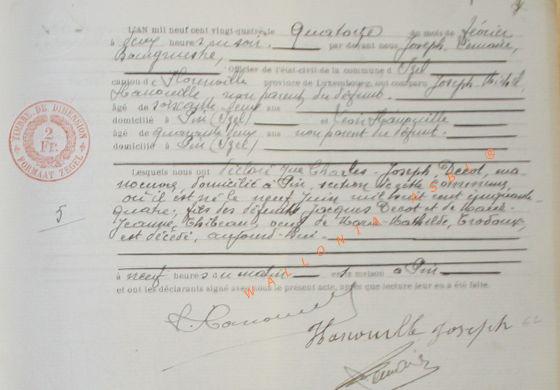 L'AN mil neuf cent vingt-quatre, le quatorze du mois de février
à deux heures du soir, par devant nous Joseph
Bourgmestre, officier de l'état civil de la commune d'Izel
canton de province de Luxembourg, ont comparu Joseph
Hanouille non parent du défunt
âgé de soixante deux ans et Léon Hanouille
domicilié à Pin (Izel)
âgé de quarante ans non parent du défunt
domicilié à Pin (Izel)
Lesquels nous ont déclaré que Charles Joseph Decot, ma-
noeuvre, domicilié à Pin, section de cette commune,
où il est né le neuf Juin mil huit cent cinquante
quatre, fils des défunts Jacques Decot et de Marie
Jeanne veuf de Marie Mathilde
est décédé, aujourd'hui
à neuf heures du matin en sa maison à Pin
et ont les déclarants signé avec nous le présent acte, après que lecture leur en a été faite.
TIMBRE DE DIMENSION
2
Fr.
FORMAAT ZEGEL
5
WALLONIA ASBL ©
Hanouille Joseph
62